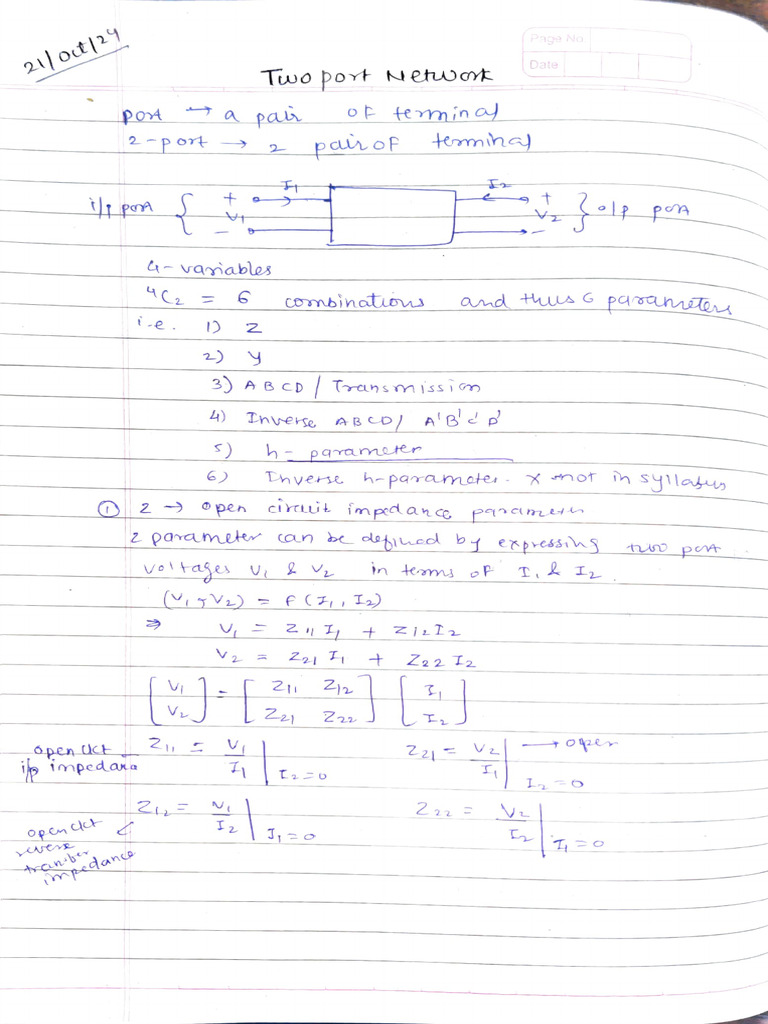 21/Oct/24
Page No
Date
Two port Network
port → a pair of terminal
2-port → 2 pair of terminal
i/p port { + V1 - I1 I2 + V2 - } o/p port
4-variables
⁴C₂ = 6 combinations and thus 6 parameters
i.e. 1) Z
2) Y
3) ABCD / Transmission
4) Inverse ABCD / A'B'C'D'
5) h-parameter
6) Inverse h-parameter. x not in syllabus
① Z → Open circuit impedance parameter
Z parameter can be defined by expressing two port
voltages V1 & V2 in terms of I1 & I2.
(V1, V2) = f(I1, I2)
⇒ V1 = Z11 I1 + Z12 I2
V2 = Z21 I1 + Z22 I2
[V1 V2] = [Z11 Z12 Z21 Z22] [I1 I2]
open ckt i/p impedance Z11 = V1/I1 | I2=0
Z21 = V2/I1 | I2=0 → open
Z12 = V1/I2 | I1=0
Z22 = V2/I2 | I1=0
open ckt
impedance